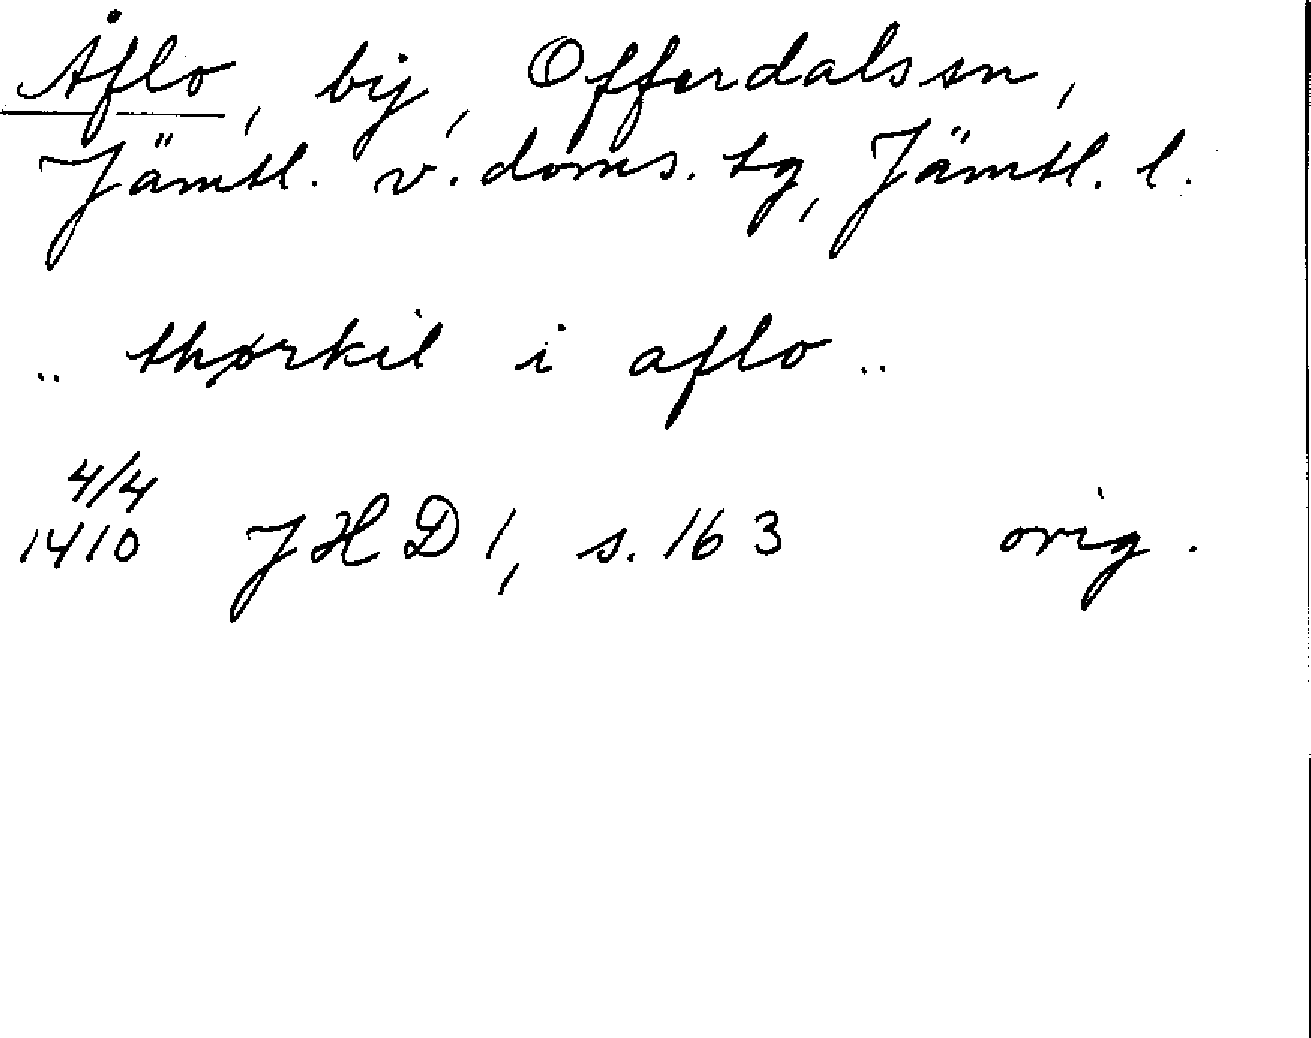 Åflo, by, Offerdals sn,
Jämtl. v. doms. tg, Jämtl. l.
.. thørkil i aflo ..
4/4
1410 JHD 1, s. 163 orig.